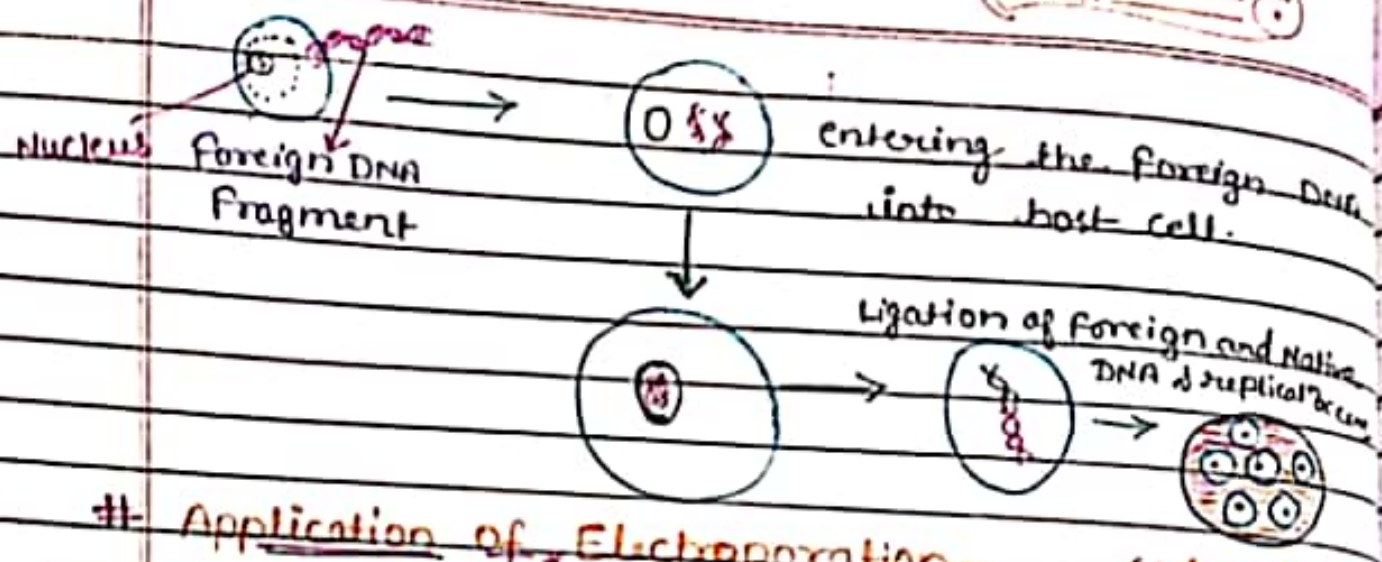 Nucleus
foreign DNA
fragment
entering the foreign
into host cell.
Ligation of foreign and Native
DNA &
# Application of Electroporation